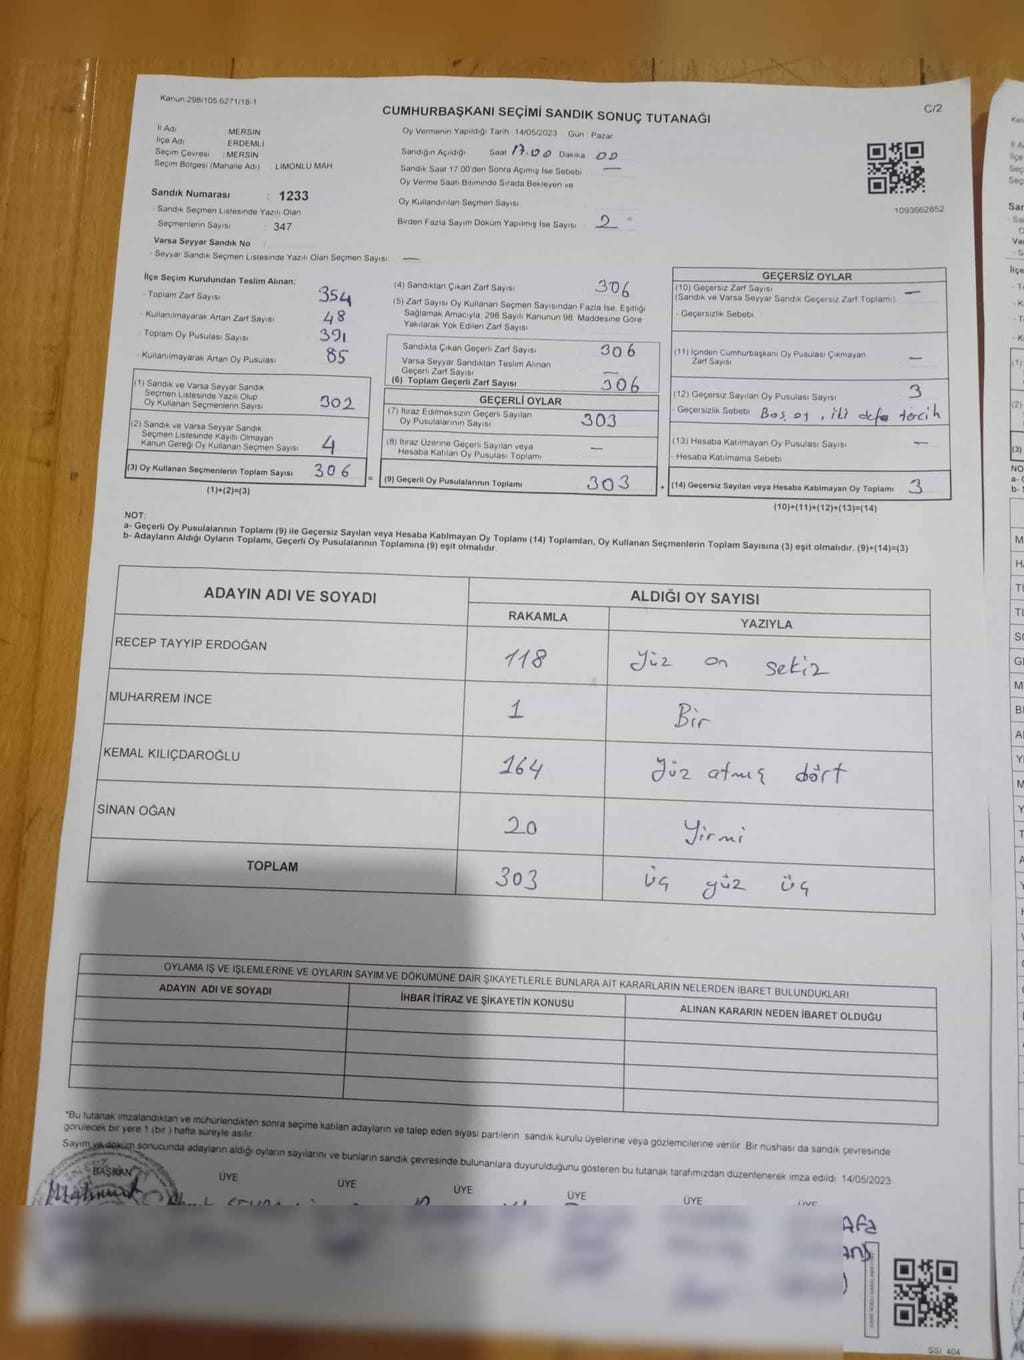 Kanun 298/105 6271/18-1
C/2
CUMHURBAŞKANI SEÇİMİ SANDIK SONUÇ TUTANAĞI
İl Adı : MERSİN
İlçe Adı : ERDEMLİ
Seçim Çevresi : MERSİN
Seçim Bölgesi (Mahalle Adı) LİMONLU MAH
Sandık Numarası : 1233
Sandık Seçmen Listesinde Yazılı Olan
Seçmenlerin Sayısı : 347
Varsa Seyyar Sandık No
Seyyar Sandık Seçmen Listesinde Yazılı Olan Seçmen Sayısı : —
Oy Vermenin Yapıldığı Tarih : 14/05/2023 Gün : Pazar
Sandığın Açıldığı Saat 17.00 Dakika 00
Sandık Saat 17:00'den Sonra Açımış İse Sebebi : —
Oy Verme Saati Bitiminde Sırada Bekleyen ve
Oy Kullandırılan Seçmen Sayısı
Birden Fazla Sayım Döküm Yapılmış İse Sayısı : 2
1093662852
İlçe Seçim Kurulundan Teslim Alınan;
Toplam Zarf Sayısı : 354
Kullanılmayarak Artan Zarf Sayısı : 48
Toplam Oy Pusulası Sayısı : 391
Kullanılmayarak Artan Oy Pusulası : 85
(1) Sandık ve Varsa Seyyar Sandık
Seçmen Listesinde Yazılı Olup
Oy Kullanan Seçmenlerin Sayısı 302
(2) Sandık ve Varsa Seyyar Sandık
Seçmen Listesinde Kayıtlı Olmayan
Kanun Gereği Oy Kullanan Seçmen Sayısı 4
(3) Oy Kullanan Seçmenlerin Toplam Sayısı 306
(1)+(2)=(3)
(4) Sandıktan Çıkan Zarf Sayısı : 306
(5) Zarf Sayısı Oy Kullanan Seçmen Sayısından Fazla İse, Eşitliği
Sağlamak Amacıyla, 298 Sayılı Kanunun 98. Maddesine Göre
Yakılarak Yok Edilen Zarf Sayısı
Sandıkta Çıkan Geçerli Zarf Sayısı 306
Varsa Seyyar Sandıktan Teslim Alınan
Geçerli Zarf Sayısı —
(6) Toplam Geçerli Zarf Sayısı 306
GEÇERLİ OYLAR
(7) İtiraz Edilmeksizin Geçerli Sayılan
Oy Pusulalarının Sayısı 303
(8) İtiraz Üzerine Geçerli Sayılan veya
Hesaba Katılan Oy Pusulası Toplamı —
=
(9) Geçerli Oy Pusulalarının Toplamı 303
+
GEÇERSİZ OYLAR
(10) Geçersiz Zarf Sayısı —
(Sandık ve Varsa Seyyar Sandık Geçersiz Zarf Toplamı)
Geçersizlik Sebebi
(11) İçinden Cumhurbaşkanı Oy Pusulası Çıkmayan
Zarf Sayısı —
(12) Geçersiz Sayılan Oy Pusulası Sayısı : 3
Geçersizlik Sebebi Boş oy, iki defa tercih
(13) Hesaba Katılmayan Oy Pusulası Sayısı : —
Hesaba Katılmama Sebebi
(14) Geçersiz Sayılan veya Hesaba Katılmayan Oy Toplamı 3
(10)+(11)+(12)+(13)=(14)
NOT:
a- Geçerli Oy Pusulalarının Toplamı (9) ile Geçersiz Sayılan veya Hesaba Katılmayan Oy Toplamı (14) Toplamları, Oy Kullanan Seçmenlerin Toplam Sayısına (3) eşit olmalıdır. (9)+(14)=(3)
b- Adayların Aldığı Oyların Toplamı, Geçerli Oy Pusulalarının Toplamına (9) eşit olmalıdır.
ADAYIN ADI VE SOYADI ALDIĞI OY SAYISI
RAKAMLA YAZIYLA
RECEP TAYYİP ERDOĞAN 118 Yüz on sekiz
MUHARREM İNCE 1 Bir
KEMAL KILIÇDAROĞLU 164 Yüz atmış dört
SİNAN OĞAN 20 Yirmi
TOPLAM 303 Üç yüz üç
OYLAMA İŞ VE İŞLEMLERİNE VE OYLARIN SAYIM VE DÖKÜMÜNE DAİR ŞİKAYETLERLE BUNLARA AİT KARARLARIN NELERDEN İBARET BULUNDUKLARI
ADAYIN ADI VE SOYADI İHBAR İTİRAZ VE ŞİKAYETİN KONUSU ALINAN KARARIN NEDEN İBARET OLDUĞU
*Bu tutanak imzalandıktan ve mühürlendikten sonra seçime katılan adayların ve talep eden siyasi partilerin sandık kurulu üyelerine veya gözlemcilerine verilir. Bir nüshası da sandık çevresinde
görülecek bir yere 1 (bir) hafta süreyle asılır.
Sayım ve döküm sonucunda adayların aldığı oyların sayılarını ve bunların sandık çevresinde bulunanlara duyurulduğunu gösteren bu tutanak tarafımızdan düzenlenerek imza edildi. 14/05/2023
BAŞKAN ÜYE ÜYE ÜYE ÜYE ÜYE ÜYE
Mahmut
SSI 404